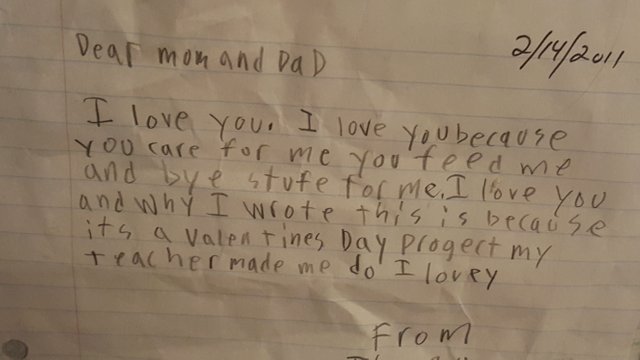 Dear mom and DaD
2/14/2011
I love you. I love you because
you care for me you feed me
and bye stufe for me. I love you
and why I wrote this is because
its a valentines Day progect my
teacher made me do I lovey
From